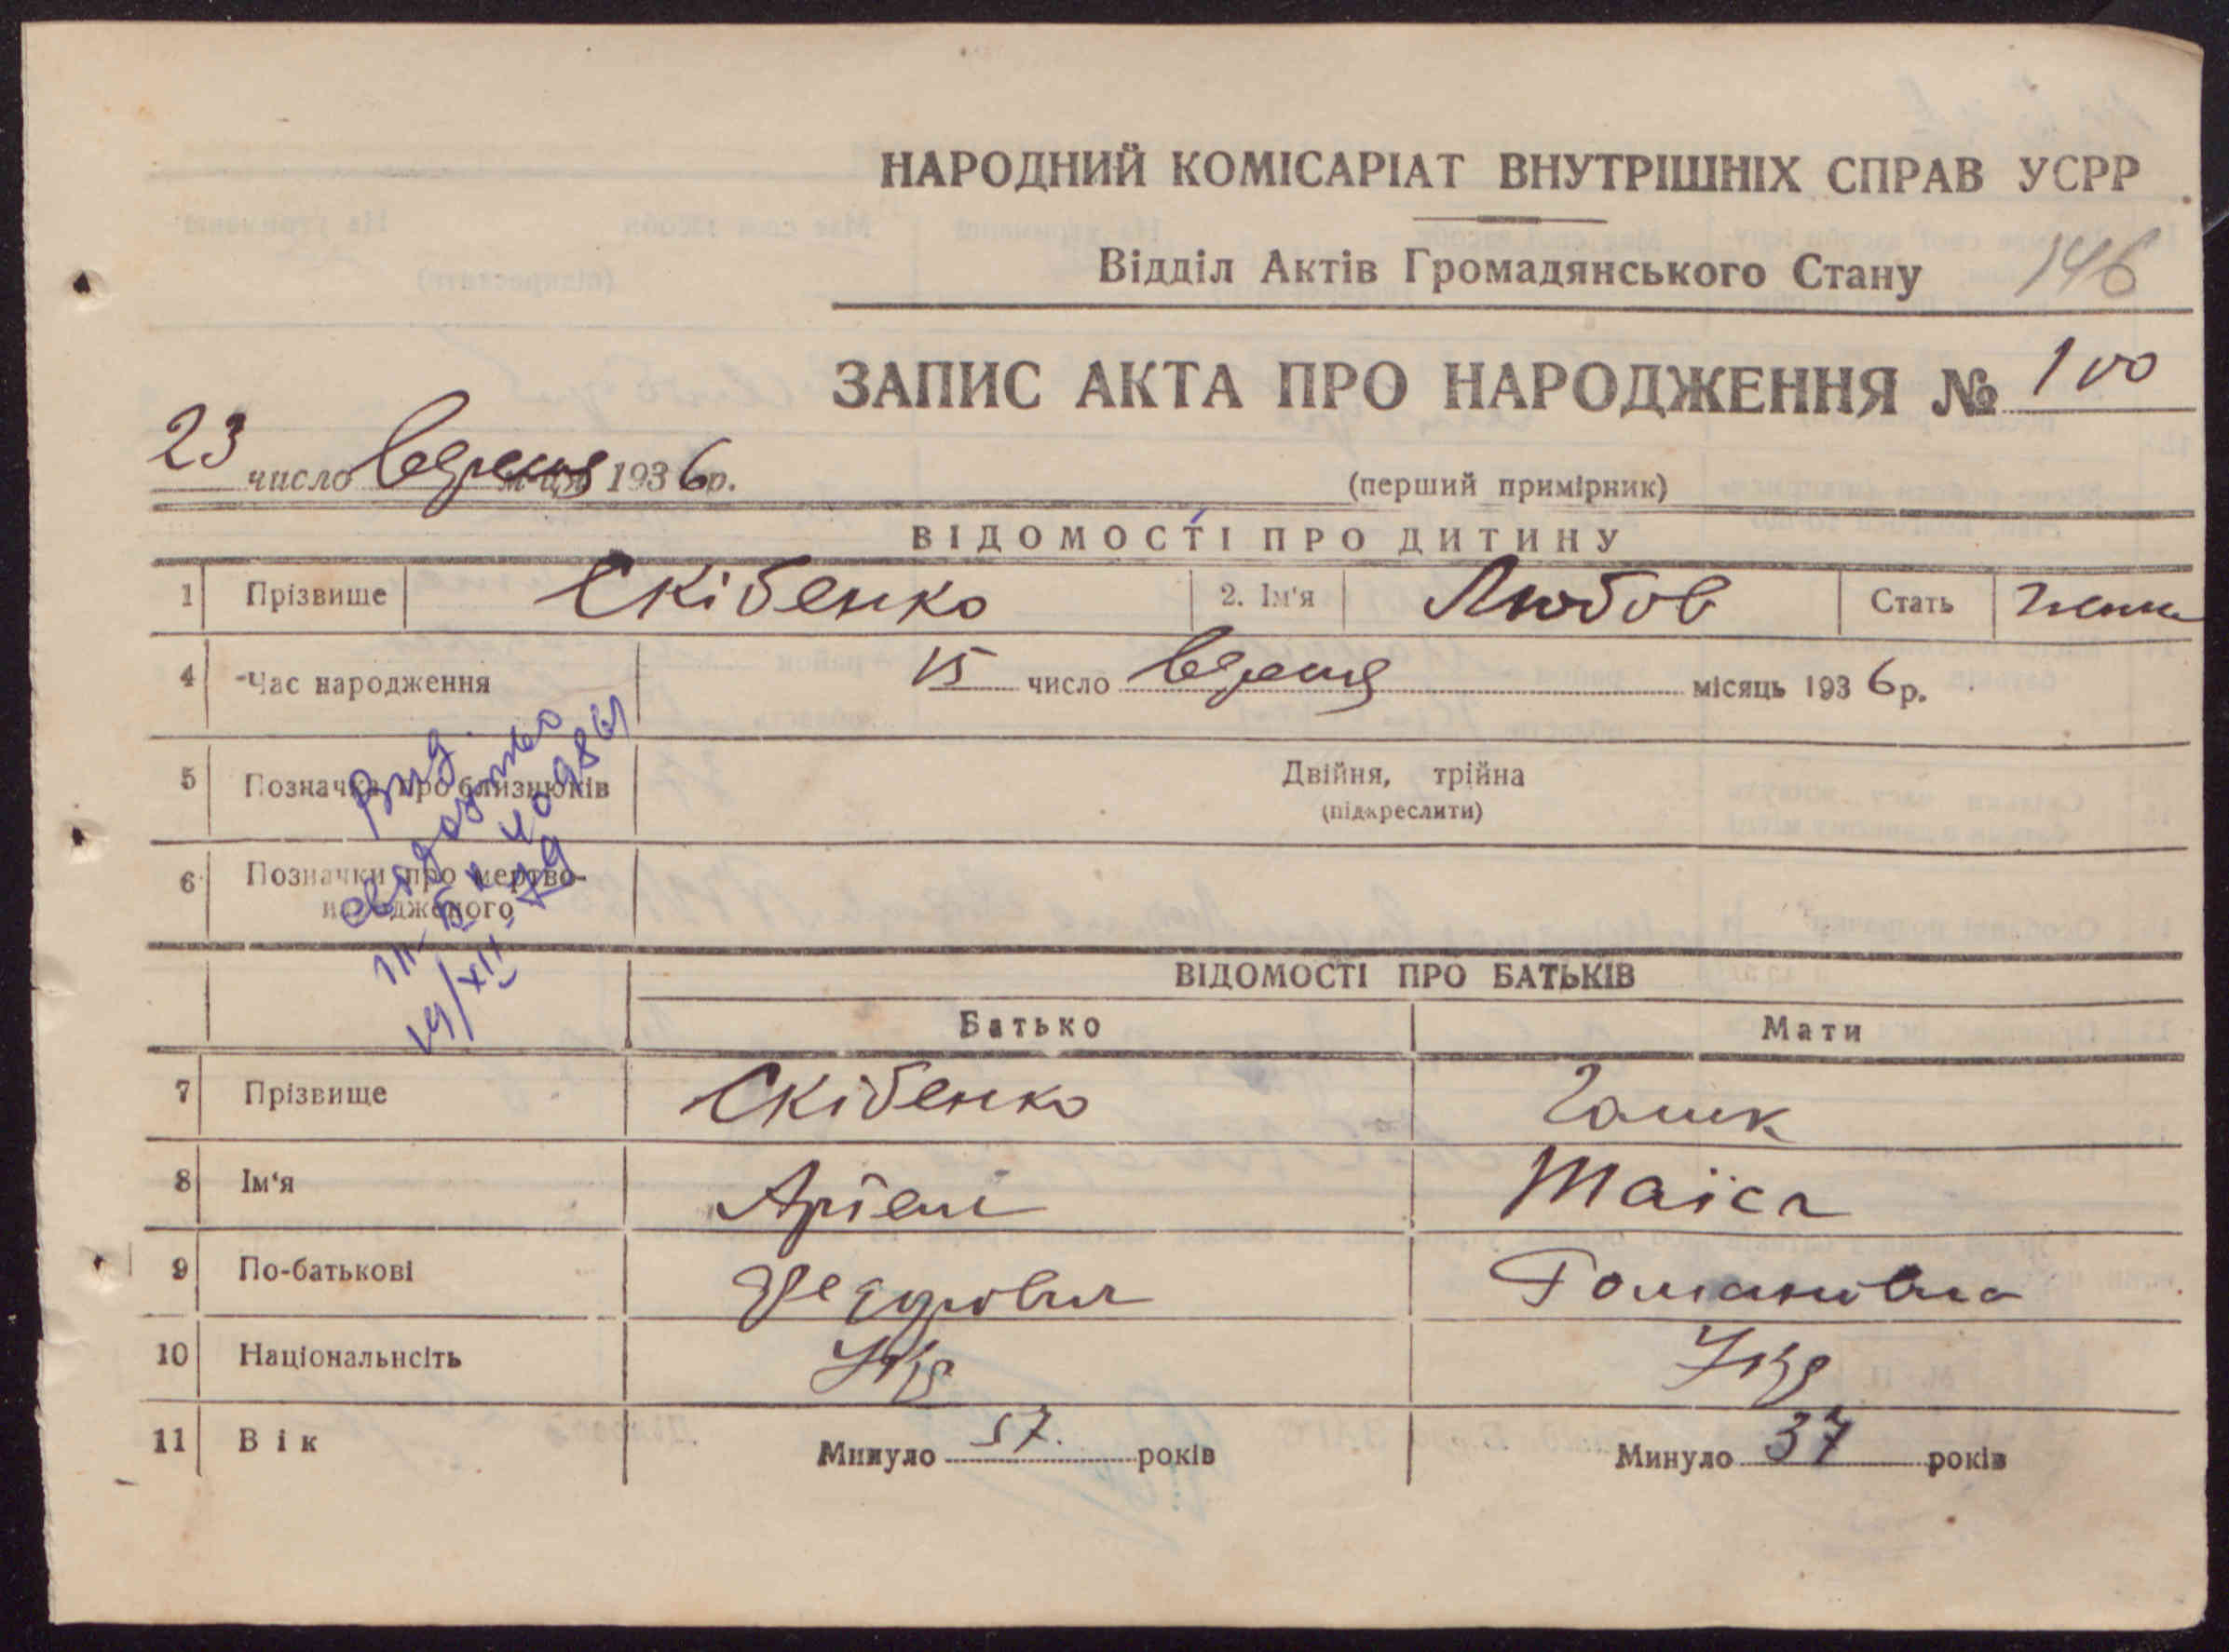 НАРОДНИЙ КОМІСАРІАТ ВНУТРІШНІХ СПРАВ УСРР
Відділ Актів Громадянського Стану 146
ЗАПИС АКТА ПРО НАРОДЖЕННЯ № 100
23 число вересня м-ця 1936 р.
(перший примірник)
ВІДОМОСТІ ПРО ДИТИНУ
1 Прізвище Скібенко 2. Ім'я Любов Стать жіноч
4 Час народження 15 число вересня місяць 1936 р.
5 Позначка про близнюків Двійня, трійна
(підкреслити)
6 Позначки про мертво-
народженого
ВІДОМОСТІ ПРО БАТЬКІВ
Батько Мати
7 Прізвище Скібенко
8 Ім'я Таїса
9 По-батькові Романовна
10 Національнсіть Укр Укр
11 Вік Минуло 37. років Минуло 37 років